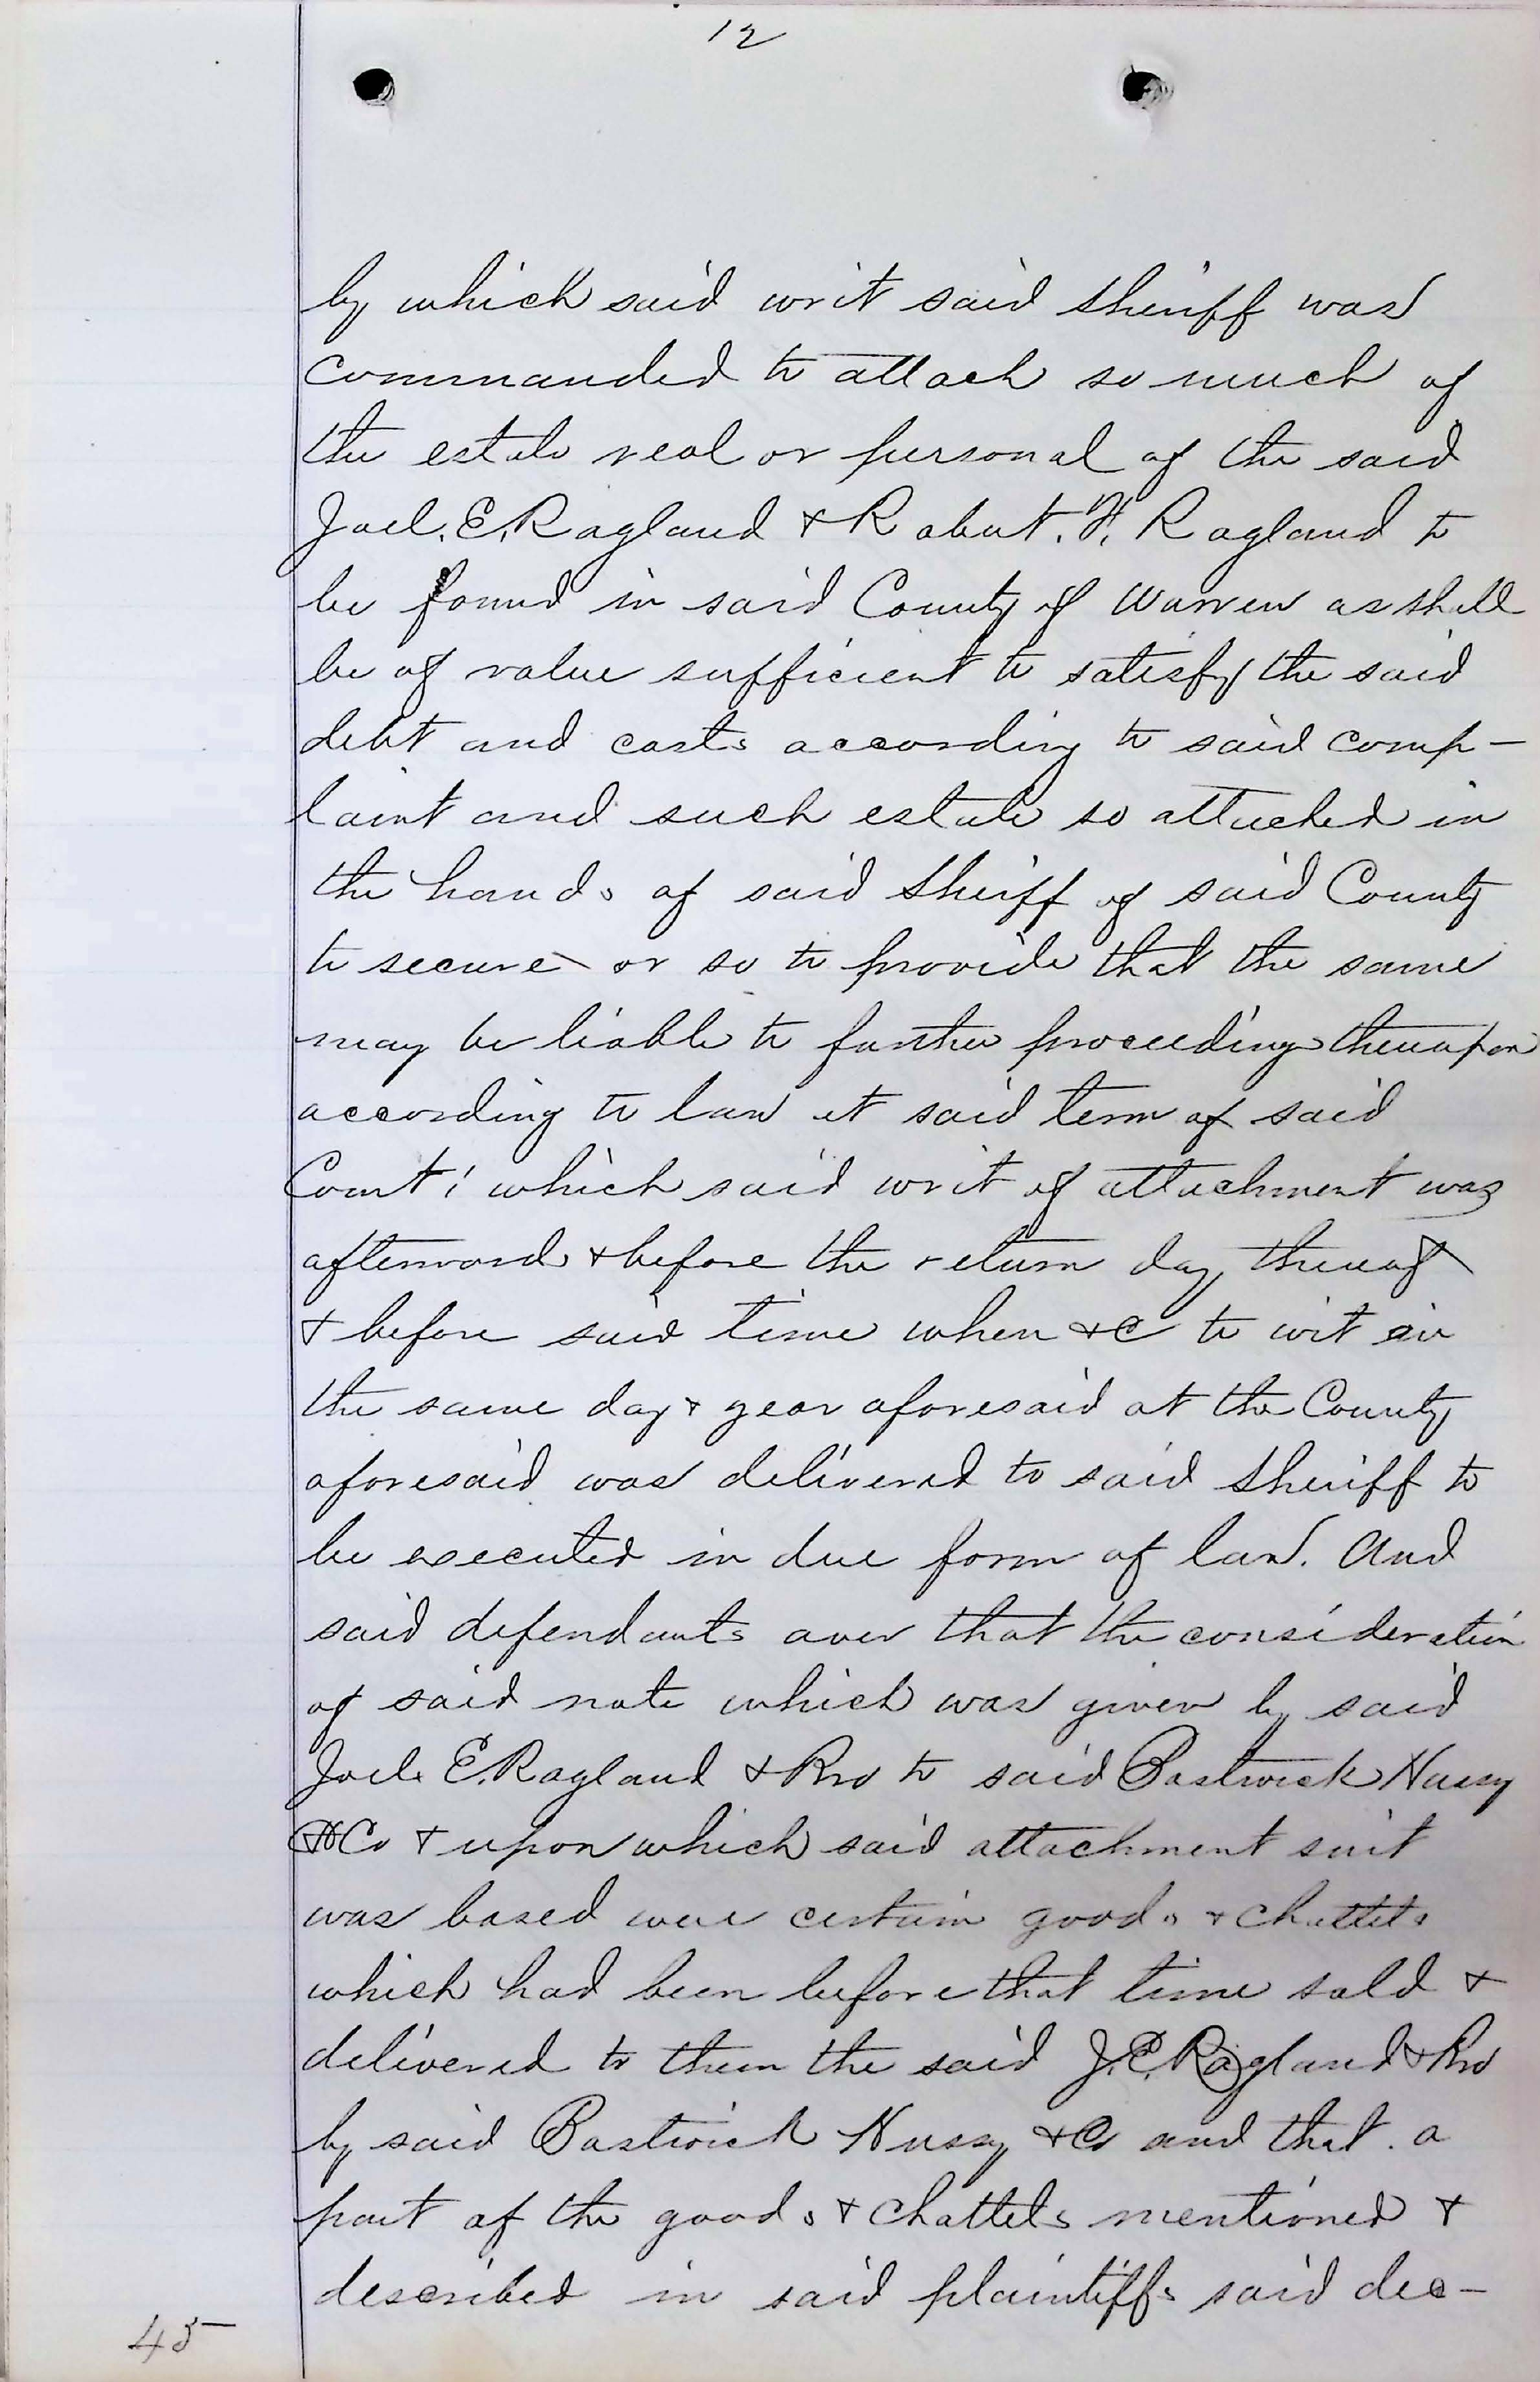 12
by which said writ said sheriff was
commanded to attach so much of
the estate real or personal of the said
Joel. E. Ragland & Robert. H. Ragland to
be found in said County of Warren as shall
be of value sufficient to satisfy the said
debt and costs according to said comp-
laint and such estate so attached in
the hands of said Sheriff of said County
to secure or so to provide that the same
may be liable to further proceedings thereupon
according to law at said term of said
Court; which said writ of attachment was
afterwards & before the return day thereof
& before said time when &c to wit on
the same day & year aforesaid at the County
aforesaid was delivered to said Sheriff to
be executed in due form of law. And
said defendants aver that the consideration
of said note which was given by said
Joel. E. Ragland & Bro to said Bostwick Hussy
& Co & upon which said attachment suit
was based were certain goods & chattels
which had been before that time sold &
delivered to them the said J. E. Ragland & Bro
by said Bostwick Hussy & Co and that. a
part of the goods & chattels mentioned &
described in said plaintiffs said dec-
45